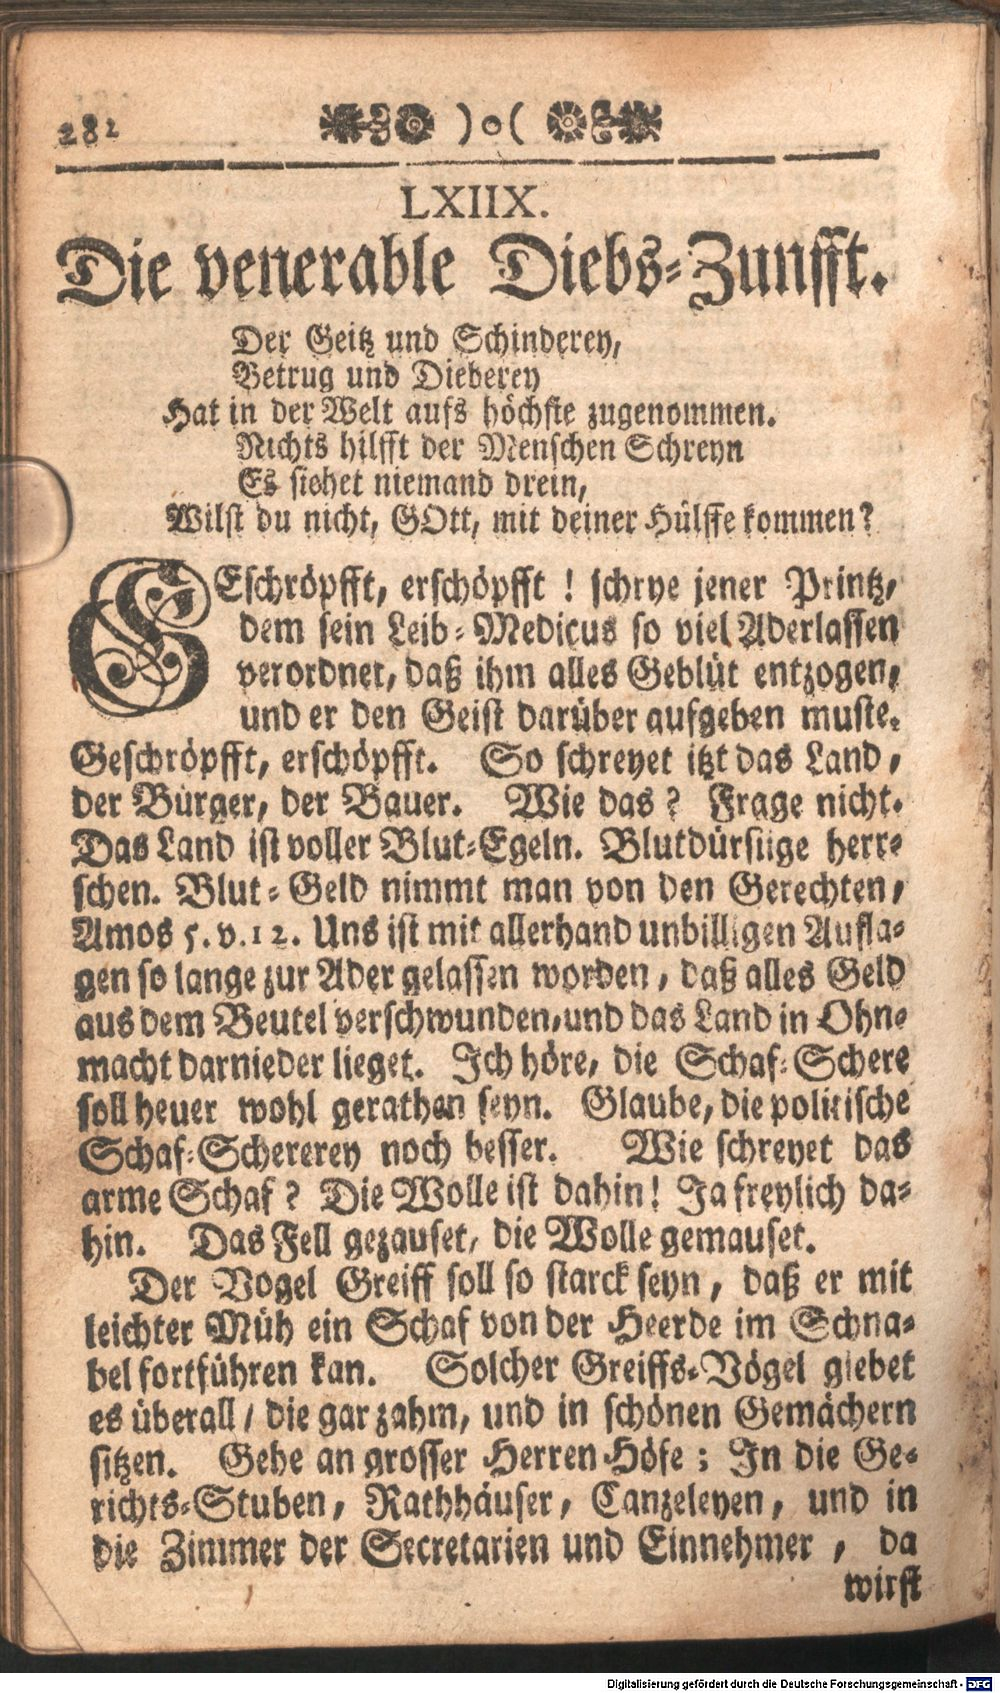 282 )o(
LXIIX.
Die venerable Diebs-Zunfft.
Der Geitz und Schinderey,
Betrug und Dieberey
Hat in der Welt aufs höchste zugenommen.
Nichts hilfft der Menschen Schreyn
Es siehet niemand drein,
Wilst du nicht, GOtt, mit deiner Hülffe kommen?
GEschröpfft, erschöpfft! schrye jener Printz,
dem sein Leib-Medicus so viel Aderlassen
verordnet, daß ihm alles Geblüt entzogen,
und er den Geist darüber aufgeben muste.
Geschröpfft, erschöpfft. So schreyet itzt das Land,
der Bürger, der Bauer. Wie das? Frage nicht.
Das Land ist voller Blut-Egeln. Blutdürstige herr-
schen. Blut-Geld nimmt man von den Gerechten,
Amos 5. v. 12. Uns ist mit allerhand unbilligen Aufla-
gen so lange zur Ader gelassen worden, daß alles Geld
aus dem Beutel verschwunden, und das Land in Ohn-
macht darnieder lieget. Ich höre, die Schaf-Schere
soll heuer wohl gerathen seyn. Glaube, die politische
Schaf-Schererey noch besser. Wie schreyet das
arme Schaf? Die Wolle ist dahin! Ja freylich da-
hin. Das Fell gezauset, die Wolle gemauset.
Der Vogel Greiff soll so starck seyn, daß er mit
leichter Müh ein Schaf von der Heerde im Schna-
bel fortführen kan. Solcher Greiffs-Vögel giebet
es überall, die gar zahm, und in schönen Gemächern
sitzen. Gehe an grosser Herren Höfe; In die Ge-
richts-Stuben, Rathhäuser, Canzeleyen, und in
die Zimmer der Secretarien und Einnehmer, da
wirst
Digitalisierung gefördert durch die Deutsche Forschungsgemeinschaft - DFG